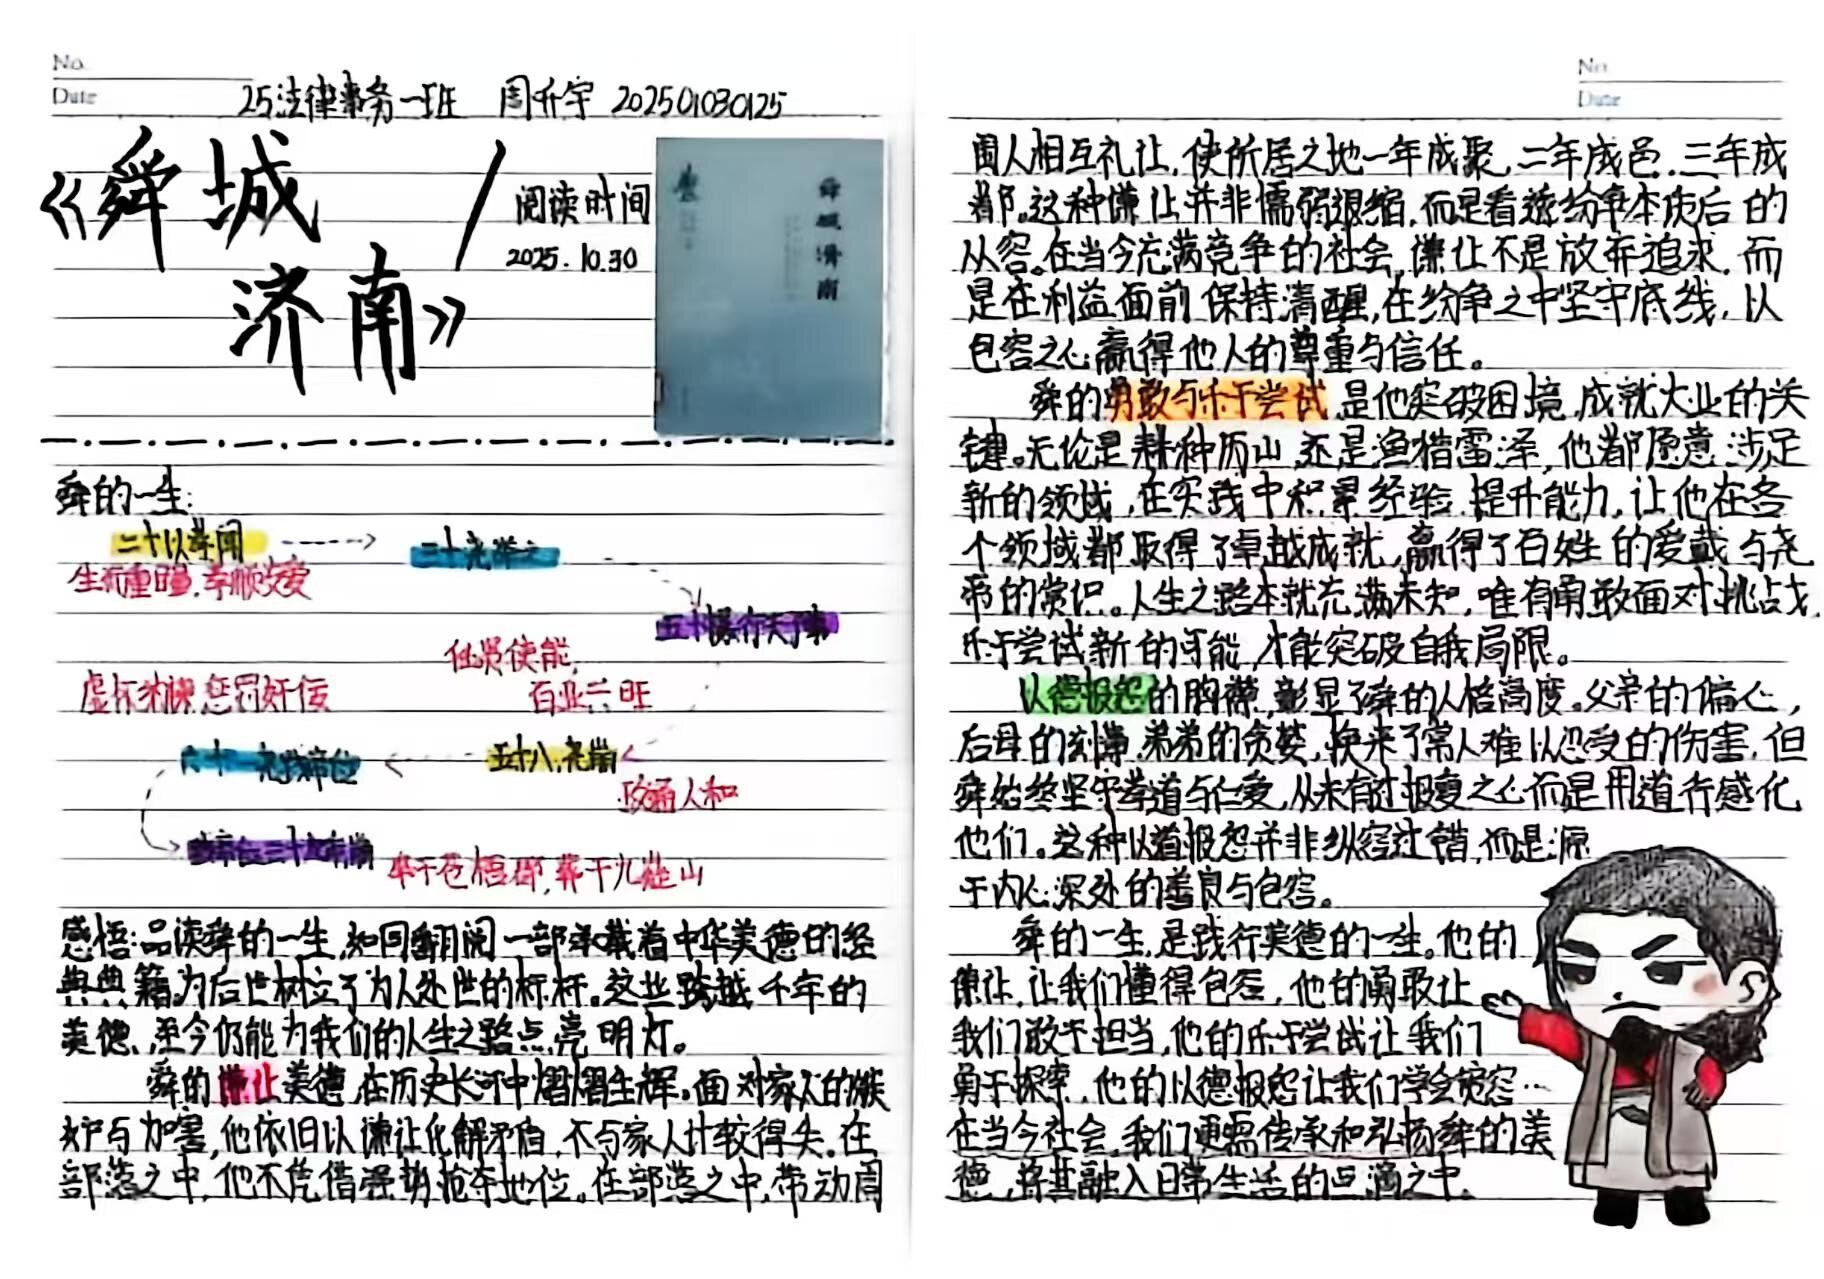 No.
Date
25法律事务一班 周升宇 202501030125
《舜城
济南》
阅读时间
2025.10.30
舜城济南
舜的一生:
二十以孝闻
三十尧举之
生而重瞳,孝顺友爱
五十摄行天子事
任贤使能,
百业兴旺
虚怀纳谏 惩罚奸佞
五十八,尧崩
六十一 尧践帝位
政通人和
践帝位三十九年崩
卒于苍梧郡,葬于九嶷山
感悟:品读舜的一生,如同翻阅一部承载着中华美德的经
典典籍,为后世树立了为人处世的标杆。这些跨越千年的
美德,至今仍能为我们的人生之路点亮明灯。
舜的谦让美德,在历史长河中熠熠生辉。面对家人的嫉
妒与加害,他依旧以谦让化解矛盾,不与家人计较得失。在
部落之中,他不凭借强势抢夺地位。在部落之中,带动周
No.
Date
围人相互礼让,使所居之地一年成聚,二年成邑,三年成
都。这种谦让并非懦弱退缩,而是看透纷争本质后的
从容。在当今充满竞争的社会,谦让不是放弃追求,而
是在利益面前保持清醒,在纷争之中坚守底线,以
包容之心赢得他人的尊重与信任。
舜的勇敢与乐于尝试,是他突破困境,成就大业的关
键。无论是耕种历山,还是渔猎雷泽,他都愿意涉足
新的领域,在实践中积累经验,提升能力,让他在各
个领域都取得了卓越成就,赢得了百姓的爱戴与尧
帝的赏识。人生之路本就充满未知,唯有勇敢面对挑战,
乐于尝试新的可能,才能突破自我局限。
以德报怨的胸襟,彰显了舜的人格高度。父亲的偏心,
后母的刻薄,弟弟的贪婪,换来了常人难以忍受的伤害,但
舜始终坚守孝道与仁爱,从未有过报复之心而是用道行感化
他们。这种以德报怨并非纵容过错,而是源
于内心深处的善良与包容。
舜的一生,是践行美德的一生。他的
谦让,让我们懂得包容,他的勇敢让
我们敢于担当,他的乐于尝试让我们
勇于探索,他的以德报怨让我们学会宽容…
在当今社会,我们更需传承和弘扬舜的美
德,将其融入日常生活的点滴之中.